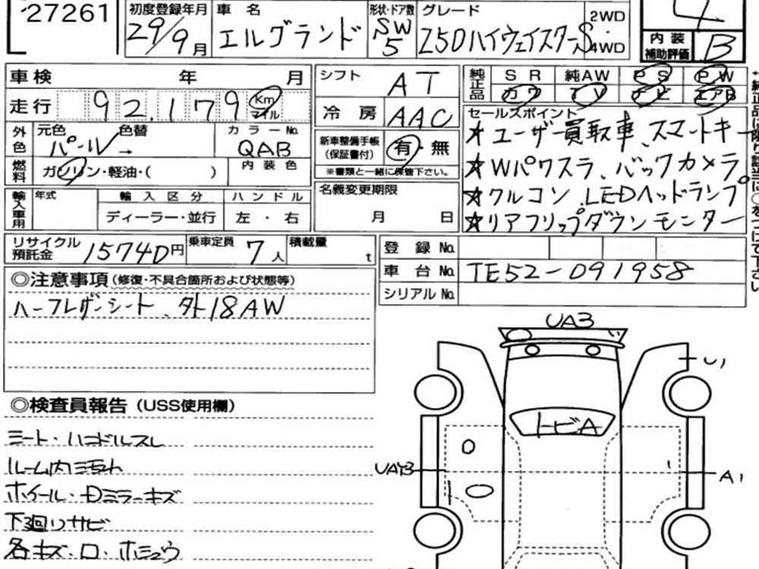 27261
初度登録年月
29年9月
車名
エルグランド
形状・ドア数
SW
5
グレード
250ハイウェイスターS
2WD
4WD
4
内装
補助評価
B
車検 年 月
走行 92,179 Km マイル
シフト AT
冷房 AAC
純正品
SR 純AW PS PW
カワ TV ナビ エアB
外色
元色 色替
パール→
カラーNo.
QAB
内装色
燃料
ガソリン・軽油・( )
新車整備手帳
(保証書付)
有・無
※書類と一緒に保管下さい。
セールスポイント
★ユーザー買取車、スマートキー
★Wパワスラ、バックカメラ。
★クルコン、LEDヘッドランプ
★リアフリップダウンモニター
輸入車用
年式
輸入区分
ハンドル
ディーラー・並行
左・右
名義変更期限
月 日
リサイクル
預託金
15740円
乗車定員 7人
積載量 t
登録No.
車台No. TE52-091958
シリアルNo.
◎注意事項(修復・不具合個所および状態等)
ハーフレザーシート、外18AW
◎検査員報告(USS使用欄)
シート・ハンドルスレ
ルーム内汚れ
ホイール・Dミラーキズ
下廻りサビ
各キズ・凹・ホシュウ
UA3
U1
トビA
A1